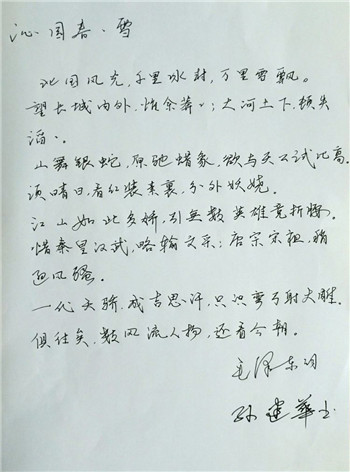 沁园春·雪
北国风光,千里冰封,万里雪飘。
望长城内外,惟余莽丶;大河上下,顿失
滔丶。
山舞银蛇,原驰蜡象,欲与天公试比高。
须晴日,看红装素裹,分外妖娆。
江山如此多娇,引無数英雄竞折腰。
惜秦皇汉武,略输文采;唐宗宋祖,稍
逊风骚。
一代天骄,成吉思汗,只识弯弓射大雕。
俱往矣,数风流人物,还看今朝。
毛泽东词
孙建华书